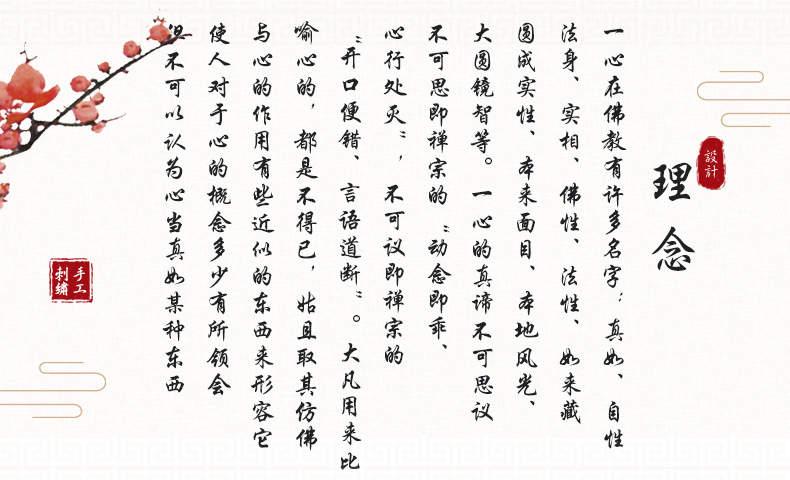 設計
理念
一心在佛教有许多名字:真如、自性
法身、实相、佛性、法性、如来藏
圆成实性、本来面目、本地风光、
大圆镜智等。一心的真谛不可思议
不可思即禅宗的“动念即乖、
心行处灭”,不可议即禅宗的
“开口便错、言语道断”。大凡用来比
喻心的,都是不得已,姑且取其仿佛
与心的作用有些近似的东西来形容它
使人对于心的概念多少有所领会
但不可以认为心当真如某种东西
手工刺繡